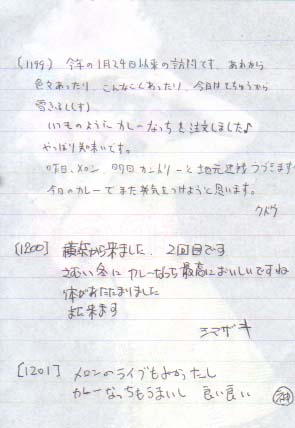 [1199] 今年の1月24日以来の訪問です。あれから
色々あったり、こんなことあったり、今日はとちゅうから
雪ふるし(す)
いつものようにカレーなっちを注文しました♪
やっぱり美味いです。
昨日、メロン、明日カントリーと地元
つづきます
今日のカレーでまた英気をつけようと思います。
クドウ
[1200] 横浜から来ました。2回目です
さむい冬に カレーなっちも最高においしいですね
体があたたまりました
また来ます
シマザキ
[1201] メロンのライブもよかったし
カレーなっちもうまいし 良い良い